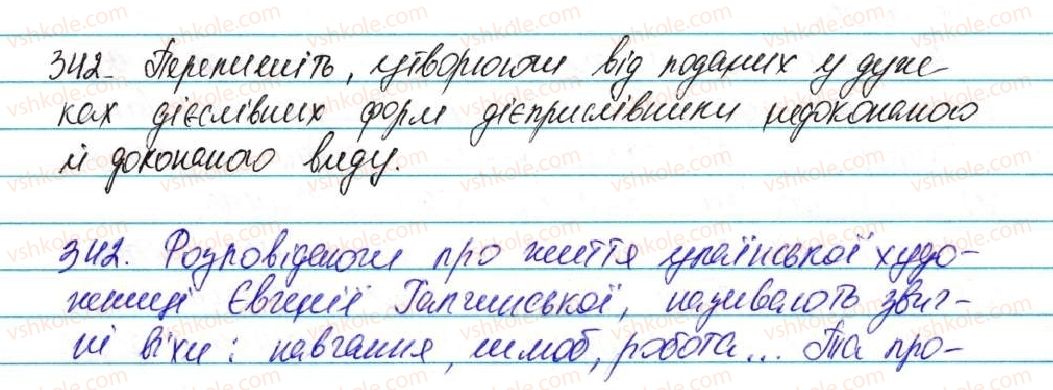 342. Перепишіть, утворюючи від поданих у дуж-
ках дієслівних форм дієприслівники недоконаного
й доконаного виду.
342. Розповідаючи про життя української худо-
жниці Євгенії Гапчинської, називають звич-
ні віхи: навчання, шлюб, робота... Та про-